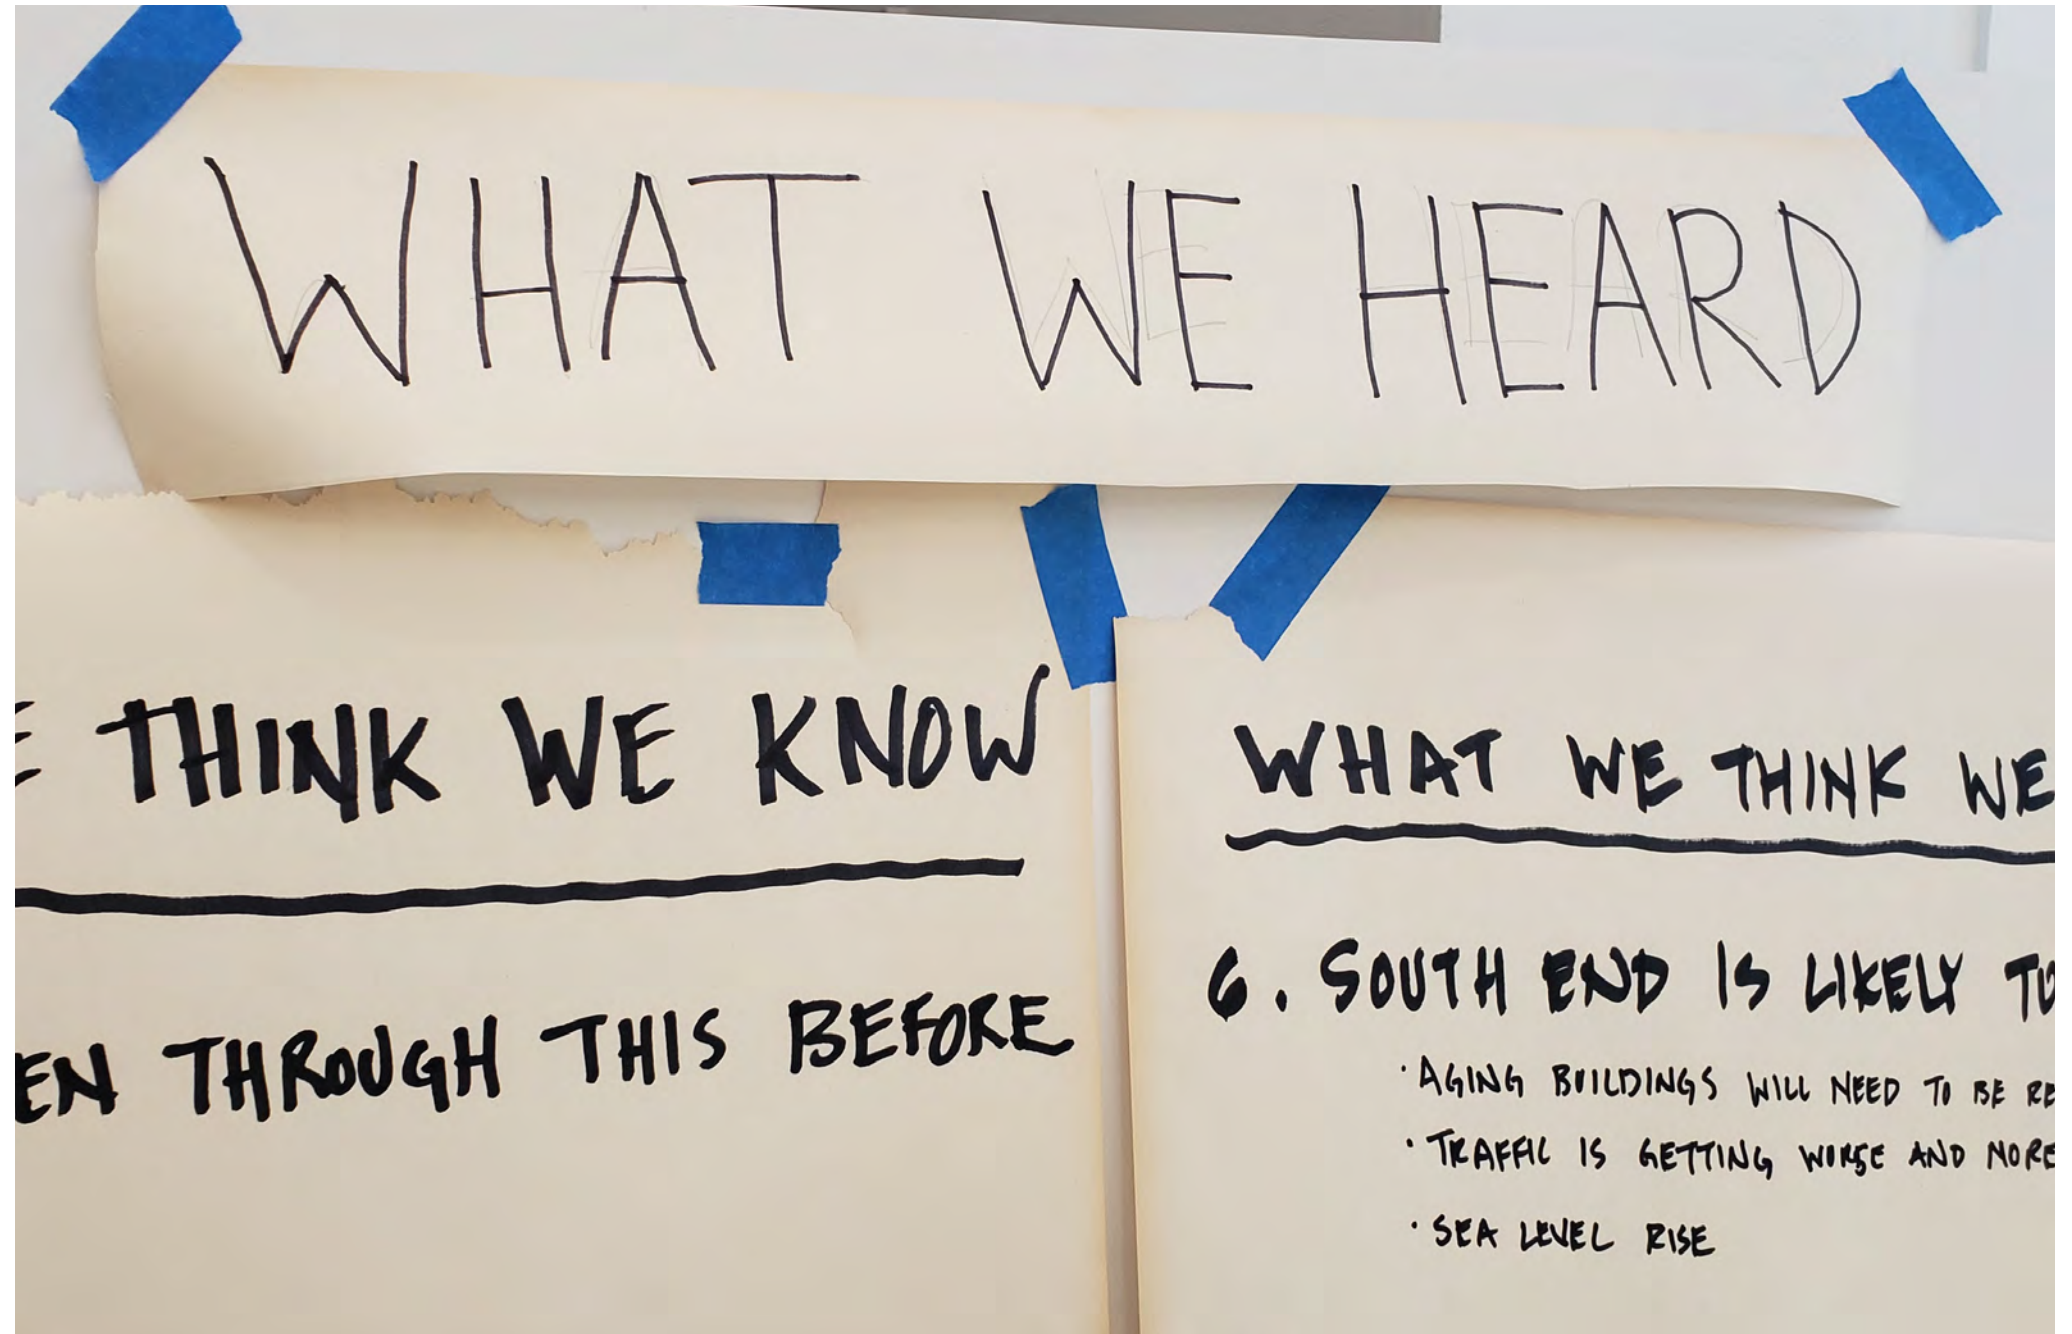 WHAT WE HEARD
THINK WE KNOW
EN THROUGH THIS BEFORE
WHAT WE THINK WE
6. SOUTH END IS LIKELY TO
· AGING BUILDINGS WILL NEED TO BE RE
· TRAFFIC IS GETTING WORSE AND MORE
· SEA LEVEL RISE